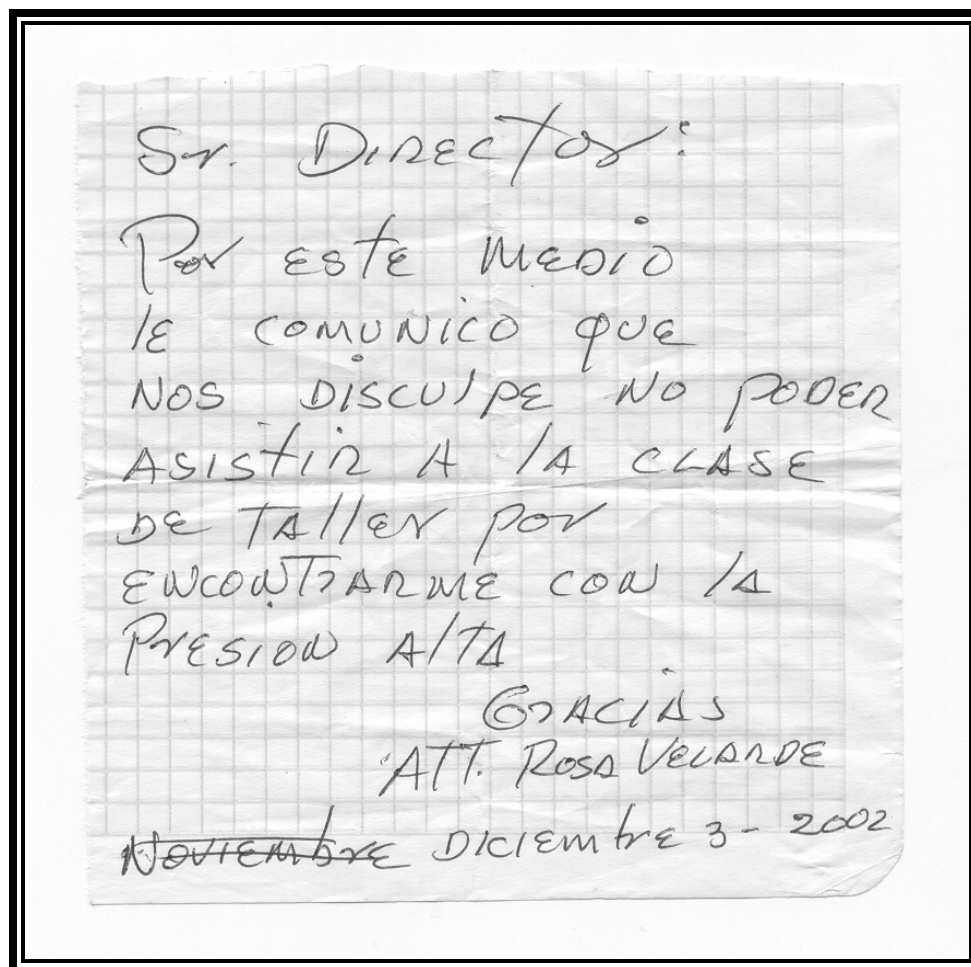 Sr. Director:
Por este medio
le comunico que
nos disculpe no poder
asistir a la clase
de taller por
encontrarme con la
presion alta
Gracias
Att. Rosa Velarde
Noviembre Diciembre 3 - 2002